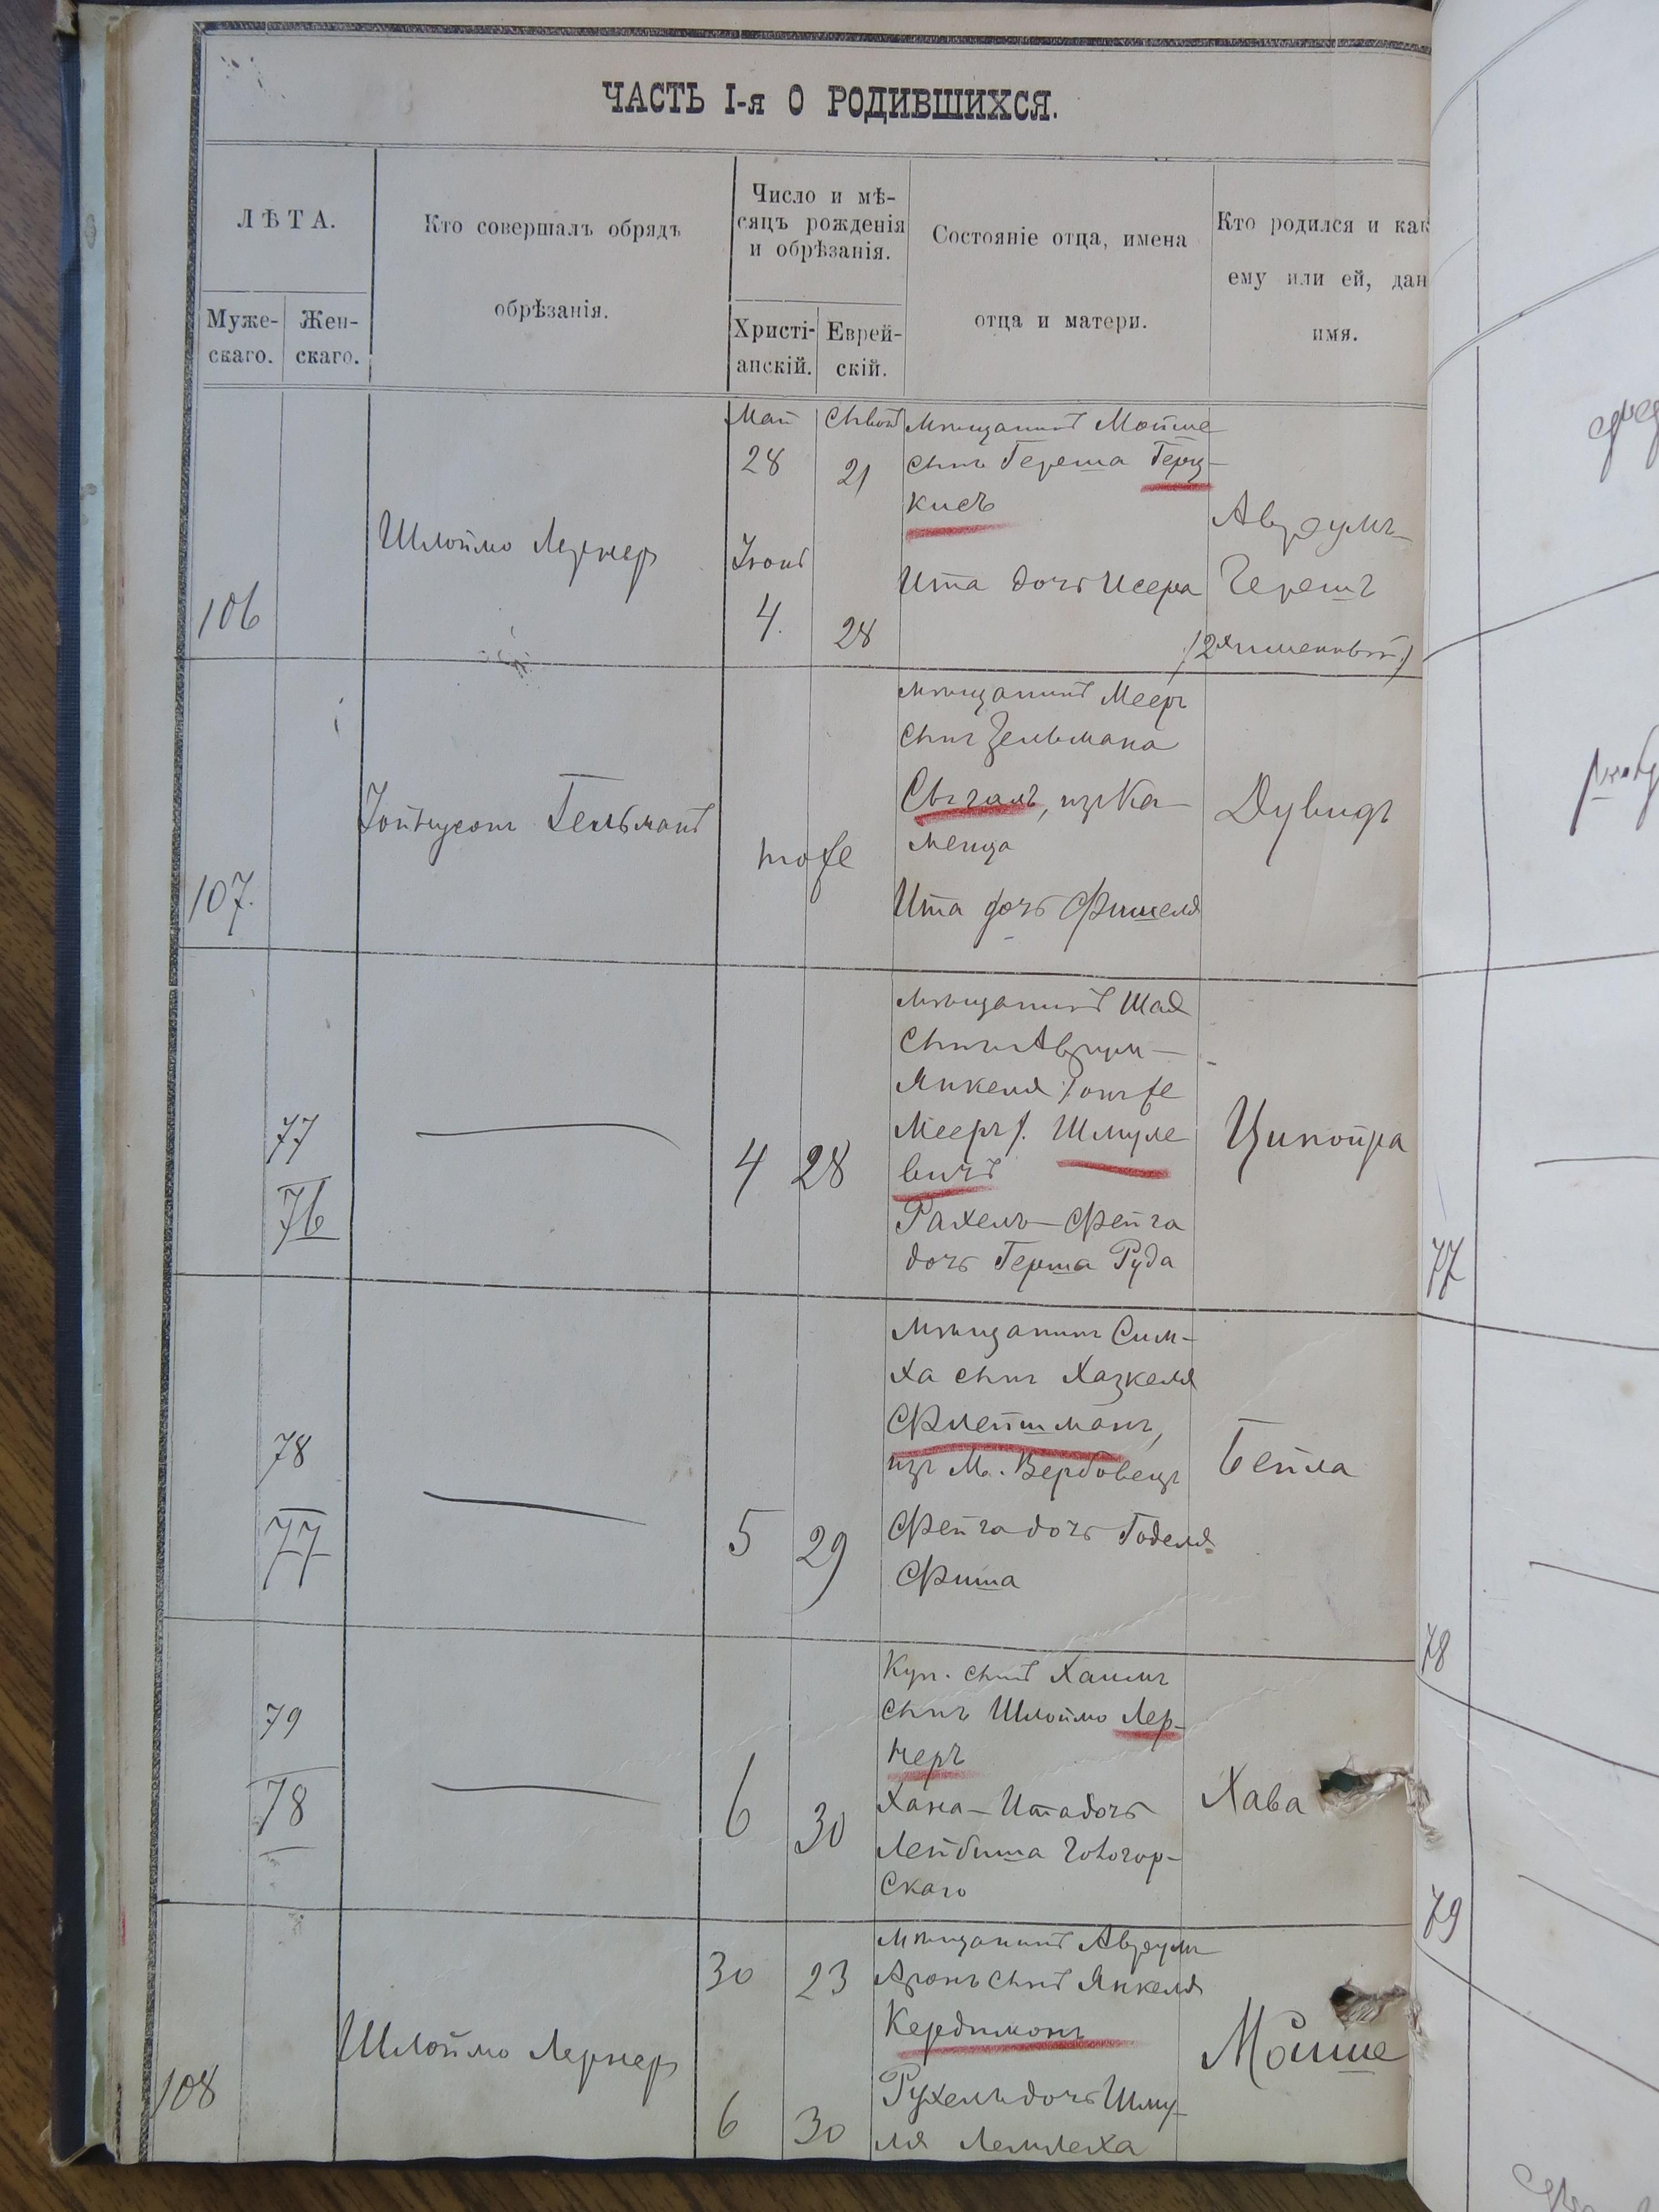 ЧАСТЬ I-я О РОДИВШИХСЯ.
ЛѢТА.
Муже-
скаго.
Жен-
скаго.
Кто совершалъ обрядъ
обрѣзанія.
Число и мѣ-
сяцъ рожденія
и обрѣзанія.
Христі-
анскій.
Еврей-
скій.
Состояніе отца, имена
отца и матери.
Кто родился и как
ему или ей, дан
имя.
106
Шлоймо Лернер
Май
28
Іюнь
4.
21
28
Мѣщанинъ Мойше
сынъ Герша Герц-
кисъ
Ита дочь Исера
Аврумъ-
Гершъ
107.
Гельманъ
тоже
мѣщанинъ Мееръ
сынъ Зельмана
Сѣгалъ, изъ Ка-
менца
Ита дочь Фишеля
Дувидъ
77
76
4
28
мѣщанинъ Шая
сынъ Аврум-
Янкеля /онъ же
Мееръ/. Шмуле
вичъ
Рахель-Фейга
дочь Герша Руда
Ципойра
78
77
5
29
мѣщанинъ Сим-
ха сынъ Хазкеля
Флейшманъ,
изъ м. Вербовецъ
Фейга дочь Годеля
Фиша
Бейла
79
78
6
30
Куп. сынъ Хаимъ
сынъ Шлоймо Лер-
неръ
Хана-Ита дочь
Лейбиша
скаго
Хава
108
Шлоймо Лернер
30
23
6
30
мѣщанинъ Аврумъ
Аронъ сынъ Янкеля
Рухель дочь Шму-
ля
Мойше
77
78
79